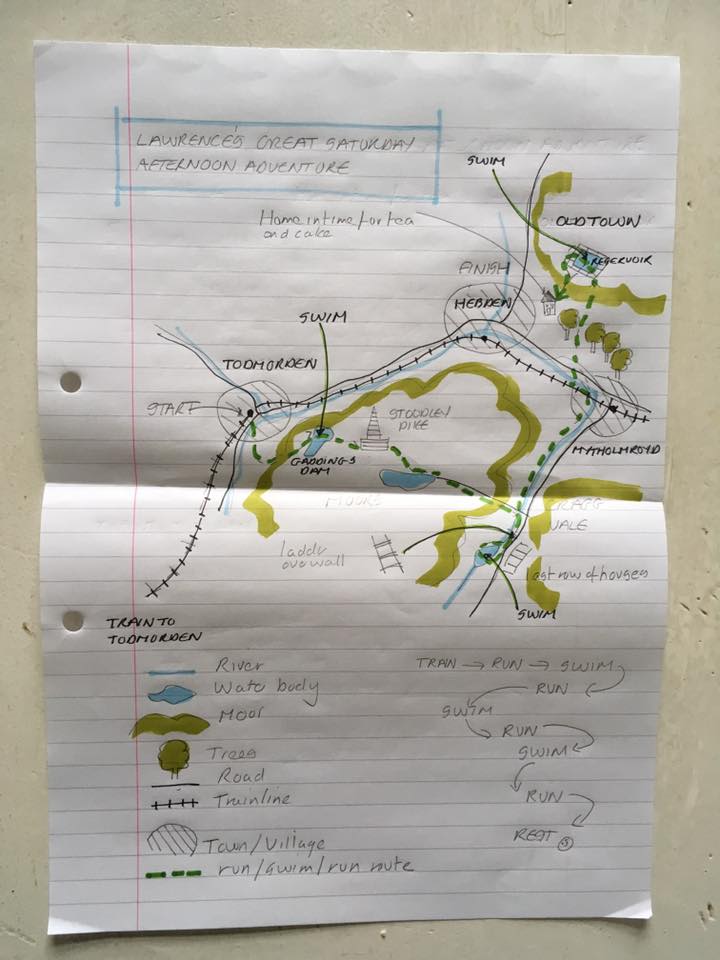 LAWRENCE'S GREAT SATURDAY
AFTERNOON ADVENTURE
SWIM
Home in time for tea
and cake
OLD TOWN
RESERVOIR
FINISH
HEBDEN
SWIM
TODMORDEN
START
STOODLEY
PIKE
GADDINGS
DAM
MYTHOLMROYD
MOORS
CRAGG
VALE
ladder
over wall
last row of houses
SWIM
TRAIN TO
TODMORDEN
River
Water body
Moor
Trees
Road
Trainline
Town/Village
run/swim/run route
TRAN → RUN → SWIM
RUN
SWIM
RUN
SWIM
RUN
REST